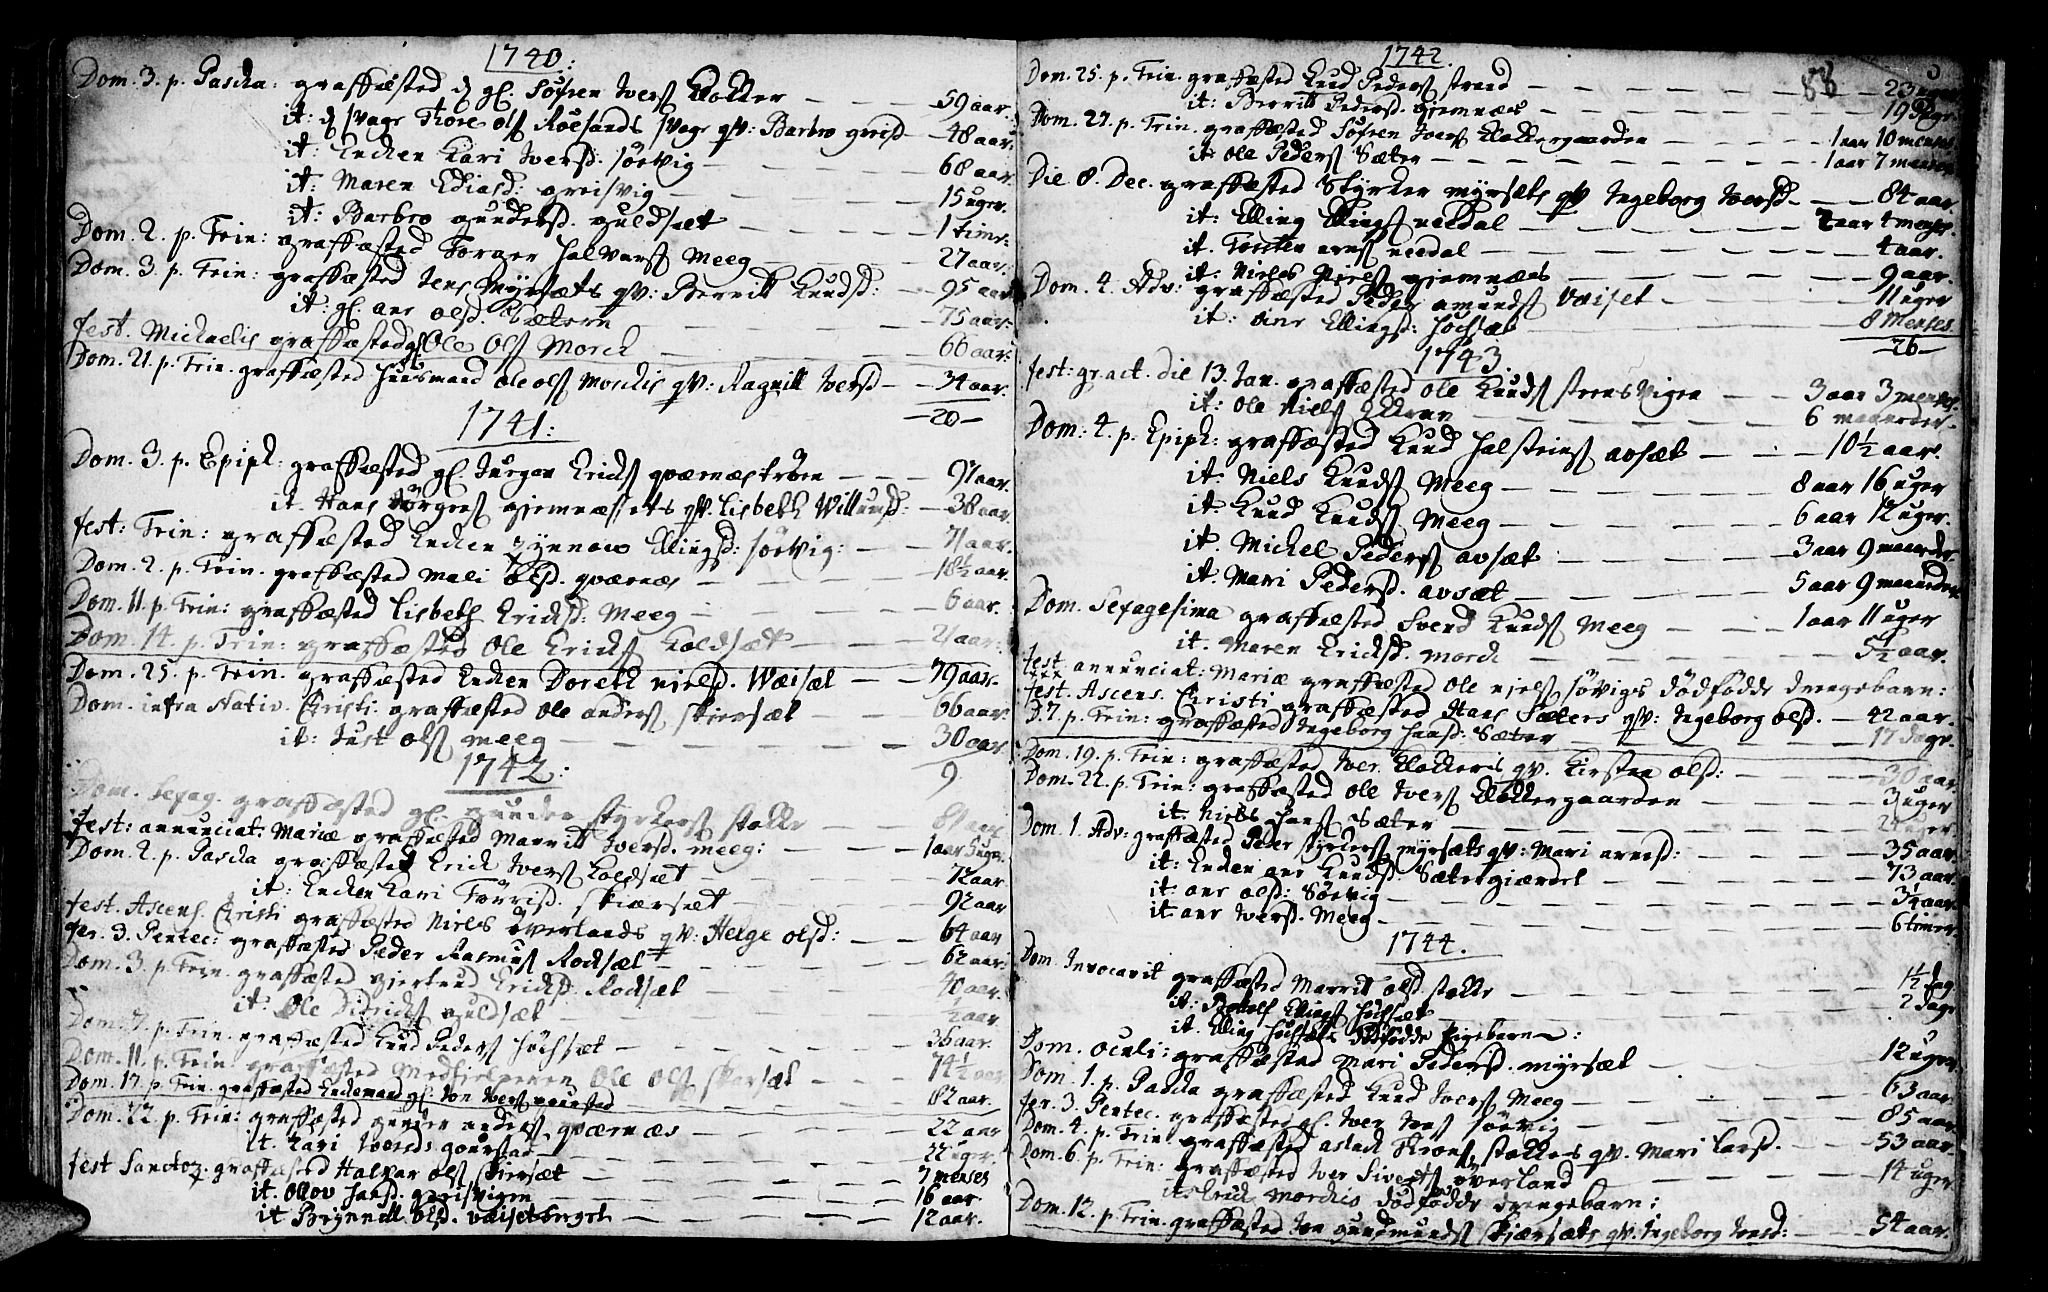 1740:
Dom. 3. p. Pascha: graffæsted d gl. Søfren Ivers Klokker — — — 59 aar.
it: d svage Thore ols Roesands svage qv: Barbro greisd — 48 aar.
it: Enken Kari Iversd: sørvig — — — 68 aar
it: Maren Ediasd: greisvig — — — 15 uger.
it: Barbro gundersd. guldsæt — — — 1 time.
Dom. 2. p. Trin: graffæsted Torger Halvars Meeg — — 27 aar.
Dom. 3. p. Trin: graffæsted Jens Myrsæts qv: Berritt Knudsd: — 95 aar
it: gl. ane olsd. Sætern — — — 75 aar:
fest. Michaelis graffæsted gl. Ole Ols Morck — — — 60 aar:
Dom. 21. p. Trin. graffæsted huusmand ole ols Morckis qv: Ragnill Iversd — 34 aar.
— 20 —
1741:
Dom. 3. p. Epiph: graffæsted gl. Jurgen Ericks qværnestrøen — — 97 aar.
it. Hans Jørgens giemnæssets qv. Lisbeth Willumsd: — 38 aar.
fest: Trin: graffæsted Enken gynnow Ellingsd: sörvig: — — 71 aar.
Dom. 2. p. Trin. graffæsted Mali olsd. qværnæs — — — 18½ aar.
Dom. 11. p. Trin: graffæsted Lisbeth Ericksd: Meeg — — — 6 aar.
Dom. 14. p. Trin: graffæsted Ole Ericks Koldsæt — — — 21 aar:
Dom. 25. p. Trin. graffæsted Enken Doreth nielsd. Wæisæt — — 79 aar.
Dom. infra Nativ. Christi. graffæsted ole anders skiersæt — — 66 aar
it: Just ols meeg — — — 30 aar
1742: 9.
Dom. Sexag. graffæsted gl. gunder styrkers stokke — — 81 aar
fest: annunciat: Mariæ graffæsted Marritt Iversd. meeg: — — 1 aar 5 uger
Dom. 2. p. Pascha graffæsted Erick Ivers Koldsæt — — — 72 aar
it: Enken Kari Tourisd: skiærsæt — — — 92 aar
fest. Ascens. Christi graffæsted Niels överlands qv: Helge olsd: — — 64 aar
fer. 3. Pentec: graffæsted Peder Rasmus Rodsæt — — — 62 aar:
Dom. 3. p. Trin. graffæsted giertrud Ericksd. Rodsæt — — — 40 aar.
it: Ole Didricks guldsæt — — — ½ aar
Dom. 7. p. Trin. graffæsted Knud Peders höchsæt — — — 36 aar.
Dom. 11. p. Trin. graffæsted Medhielperen Ole ols skarsæt — — 74½ aar
Dom. 17. p. Trin. graffæsted Enkemand gl. Jon Ivers — — — 82 aar.
Dom. 22. p. Trin: graffæsted gunder anders qværnæs — — — 22 aar
it. Kari Iversd. — — — 22 uger.
fest Sanctor. graffæsted Halvar ols skiersæt — — — 7 menses
it. Olov hansd. greisvigen — — — 16 aar.
it Brynnill olsd. væisetengel — — — 12 aar.
1742. 88
Dom. 25. p. Trin. graffæsted Knud Peders strand — — — 23 uger
it: Berritt Pedersd. giemnæs — — — 19 dage.
Dom. 27. p. Trin. graffæsted Søfren Ivers Klokkergaarden — — — 1 aar 10 menses
it: Ole Peders Sæter — — — 1 aar 7 menses
Die 8. Dec. graffæsted Styrker Myrsæts qv Ingeborg Iversd — — 84 aar.
it: Elling Ellings needal — — — 2 aar 4 menses.
it. Tosten arns needal — — — 4 aar.
it: Niels Niels giemnæs — — — 9 aar.
Dom. 4. Adv: graffæsted Peder amunds Væiset — — — 11 uger
it: ane Ellingsd: höchsæt — — — 8 Menses.
— 26 —
1743.
fest: gr. act. die 13. Jan. graffæsted ole Knuds steensvigen — — 3 aar 3 menses.
it: ole Niels — — — 6 maaneder.
Dom: 4. p. Epiph: graffæsted Knud Halsteins avsæt — — — 10½ aar.
it. Niels Knuds Meeg — — — 8 aar 16 uger
it. Knud Knuds Meeg — — — 6 aar 12 uger.
it. Michel Peders avsæt — — — 3 aar 9 maaneder
it. Mari Pedersd. avsæt — — — 5 aar 9 maaneder
Dom. Sexagesima graffæsted Svend Knuds Meeg — — 1 aar 11 uger
it. Maren Ericksd. morck — — — 5½ aar.
fest annunciat: Mariæ graffæsted ole niels sövigs dödfödde drengebarn:
fest. Ascens. Christi graffæsted Hans Sæters qv: Ingeborg olsd. — 42 aar.
D. 7. p. Trin: graffæsted Ingeborg hansd: Sæter — — — 17 dage.
Dom. 19. p. Trin: graffæsted Iver Klockeris qv. Kirsten olsd: — — 30 aar
Dom. 22. p. Trin: graffæsted ole Ivers Klokkergaarden — — — 3 uger
it. Niels hans Sæter — — — 2 uger
Dom. 1. Adv: graffæsted Peder styrkers myrsæts qv: Mari arnesd: — — 35 aar.
it: Enken ane Knudsd. Sætergiærdet — — — 73 aar.
it: ane olsd: Sörvig — — — 3¼ aar.
it. ane Iversd. Meeg — — — 6 timer
1744.
Dom Invocavit graffæsted Marrit olsd stokke — — — 1½ dag
it: Bottolf Ellings höchsæt — — — 2 dage
it. Elling höchsæts dødfödde Pigebarn:
Dom. Oculi: graffæsted Mari Pedersd. myrsæt — — — 12 uger
Dom. 1. p. Pascha graffæsted Knud Ivers Meeg — — — 63 aar
fer. 3. Pentec. graffæsted gl. Iver Jons sörvig — — — 85 aar
Dom. 4. p. Trin. graffæsted aslack Throns stokkes qv. Mari Larsd. — — 53 aar.
Dom. 6. p. Trin. graffæsted Iver Siverts överland — — — 14 uger
it: Erick Morckis dödfödde drengebarn:
Dom. 12. p. Trin. graffæsted Jon gundmunds skjærsæts qv. Ingeborg Jonsd: — — 54 aar.